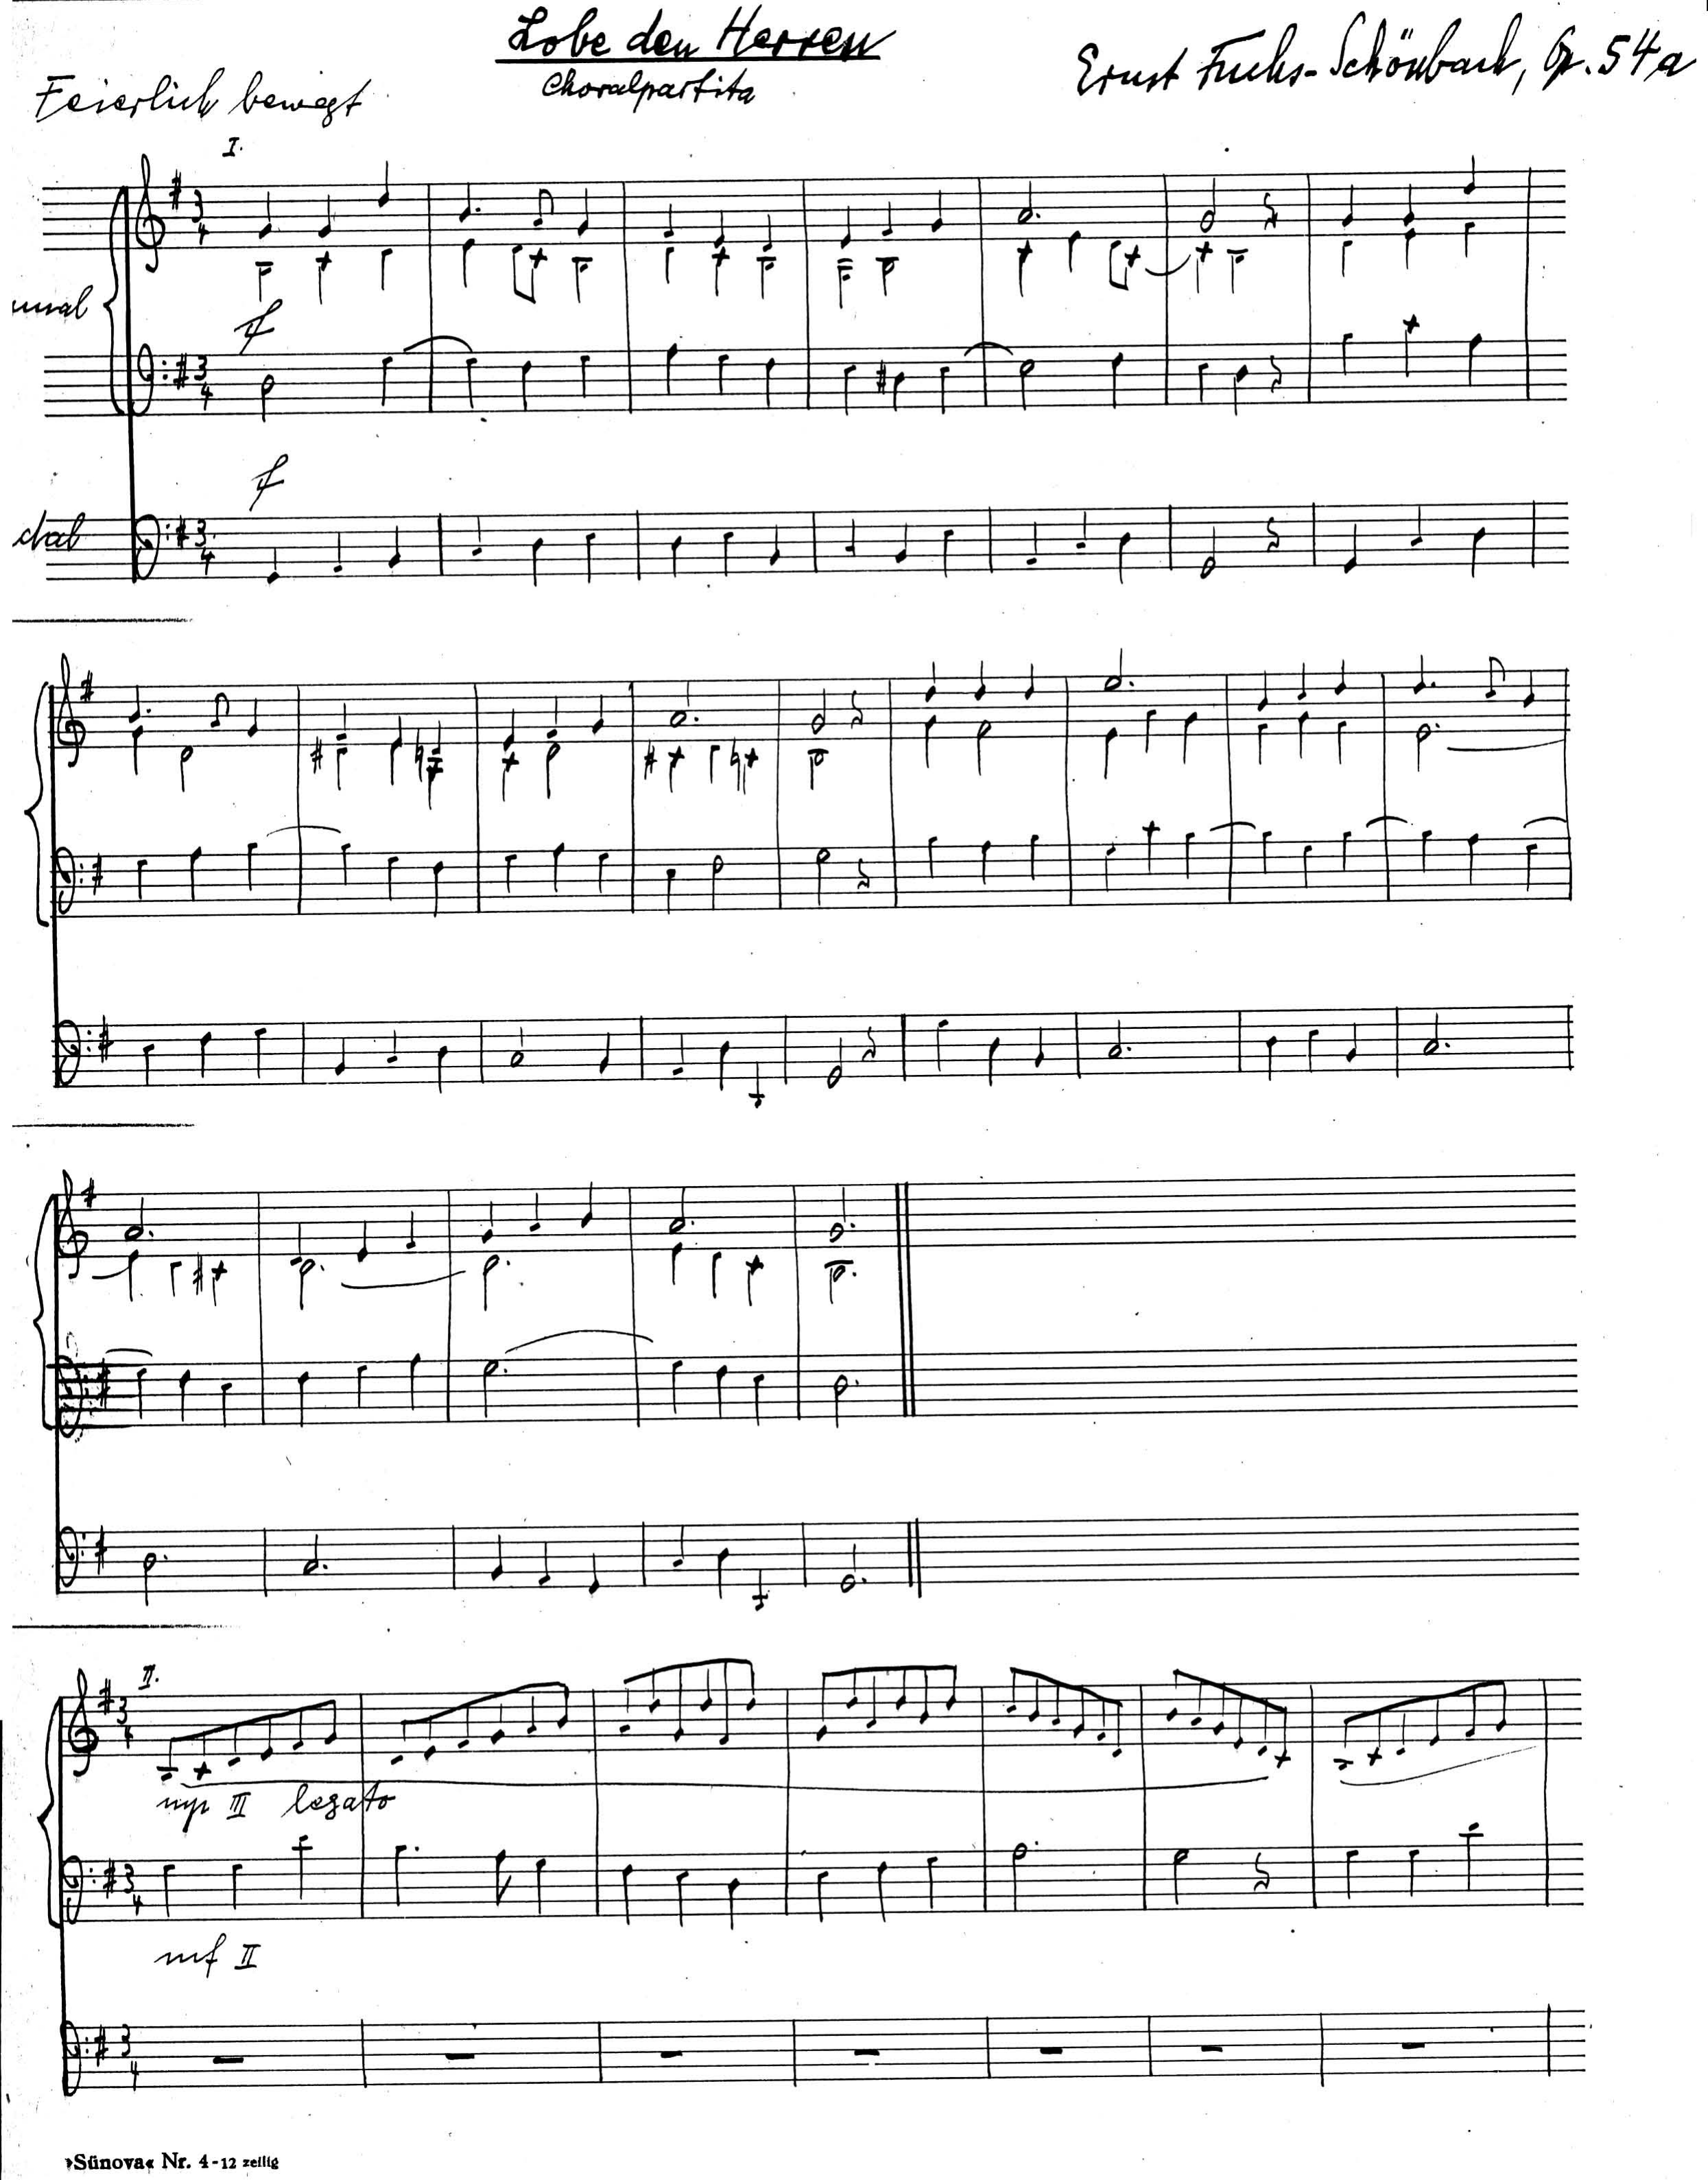 Lobe den Herren
Choralpartita
Ernst Fuchs-Schönbach, Op. 54a
Feierlich bewegt
I.
nual
f
f
dal
II.
mp III legato
mf II
»Sünova« Nr. 4 - 12 zeilig